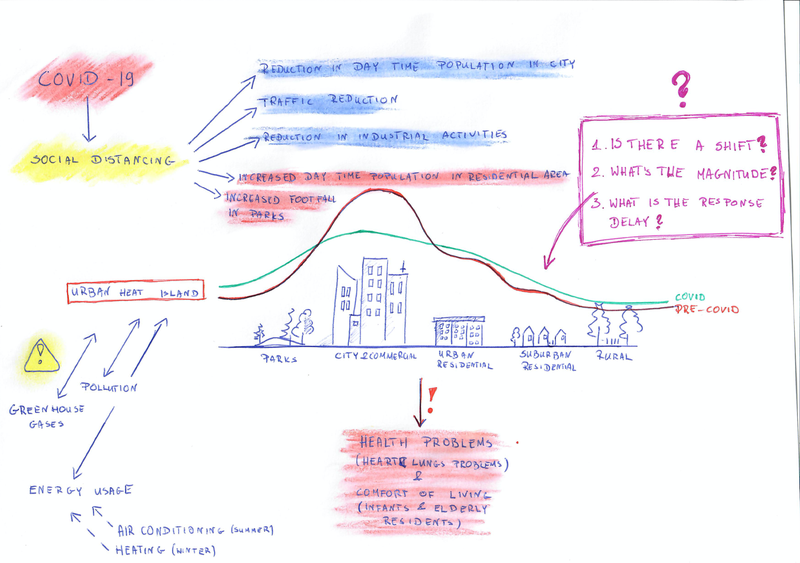 COVID-19
SOCIAL DISTANCING
REDUCTION IN DAY TIME POPULATION IN CITY
TRAFFIC REDUCTION
REDUCTION IN INDUSTRIAL ACTIVITIES
INCREASED DAY TIME POPULATION IN RESIDENTIAL AREA
INCREASED FOOTFALL
IN PARKS
?
1. IS THERE A SHIFT?
2. WHAT'S THE MAGNITUDE?
3. WHAT IS THE RESPONSE
DELAY?
URBAN HEAT ISLAND
COVID
PRE-COVID
PARKS
CITY & COMMERCIAL
URBAN
RESIDENTIAL
SUBURBAN
RESIDENTIAL
RURAL
!
POLLUTION
GREENHOUSE
GASES
ENERGY USAGE
AIR CONDITIONING (SUMMER)
HEATING (WINTER)
!
HEALTH PROBLEMS
(HEART & LUNGS PROBLEMS)
&
COMFORT OF LIVING
(INFANTS & ELDERLY
RESIDENTS)